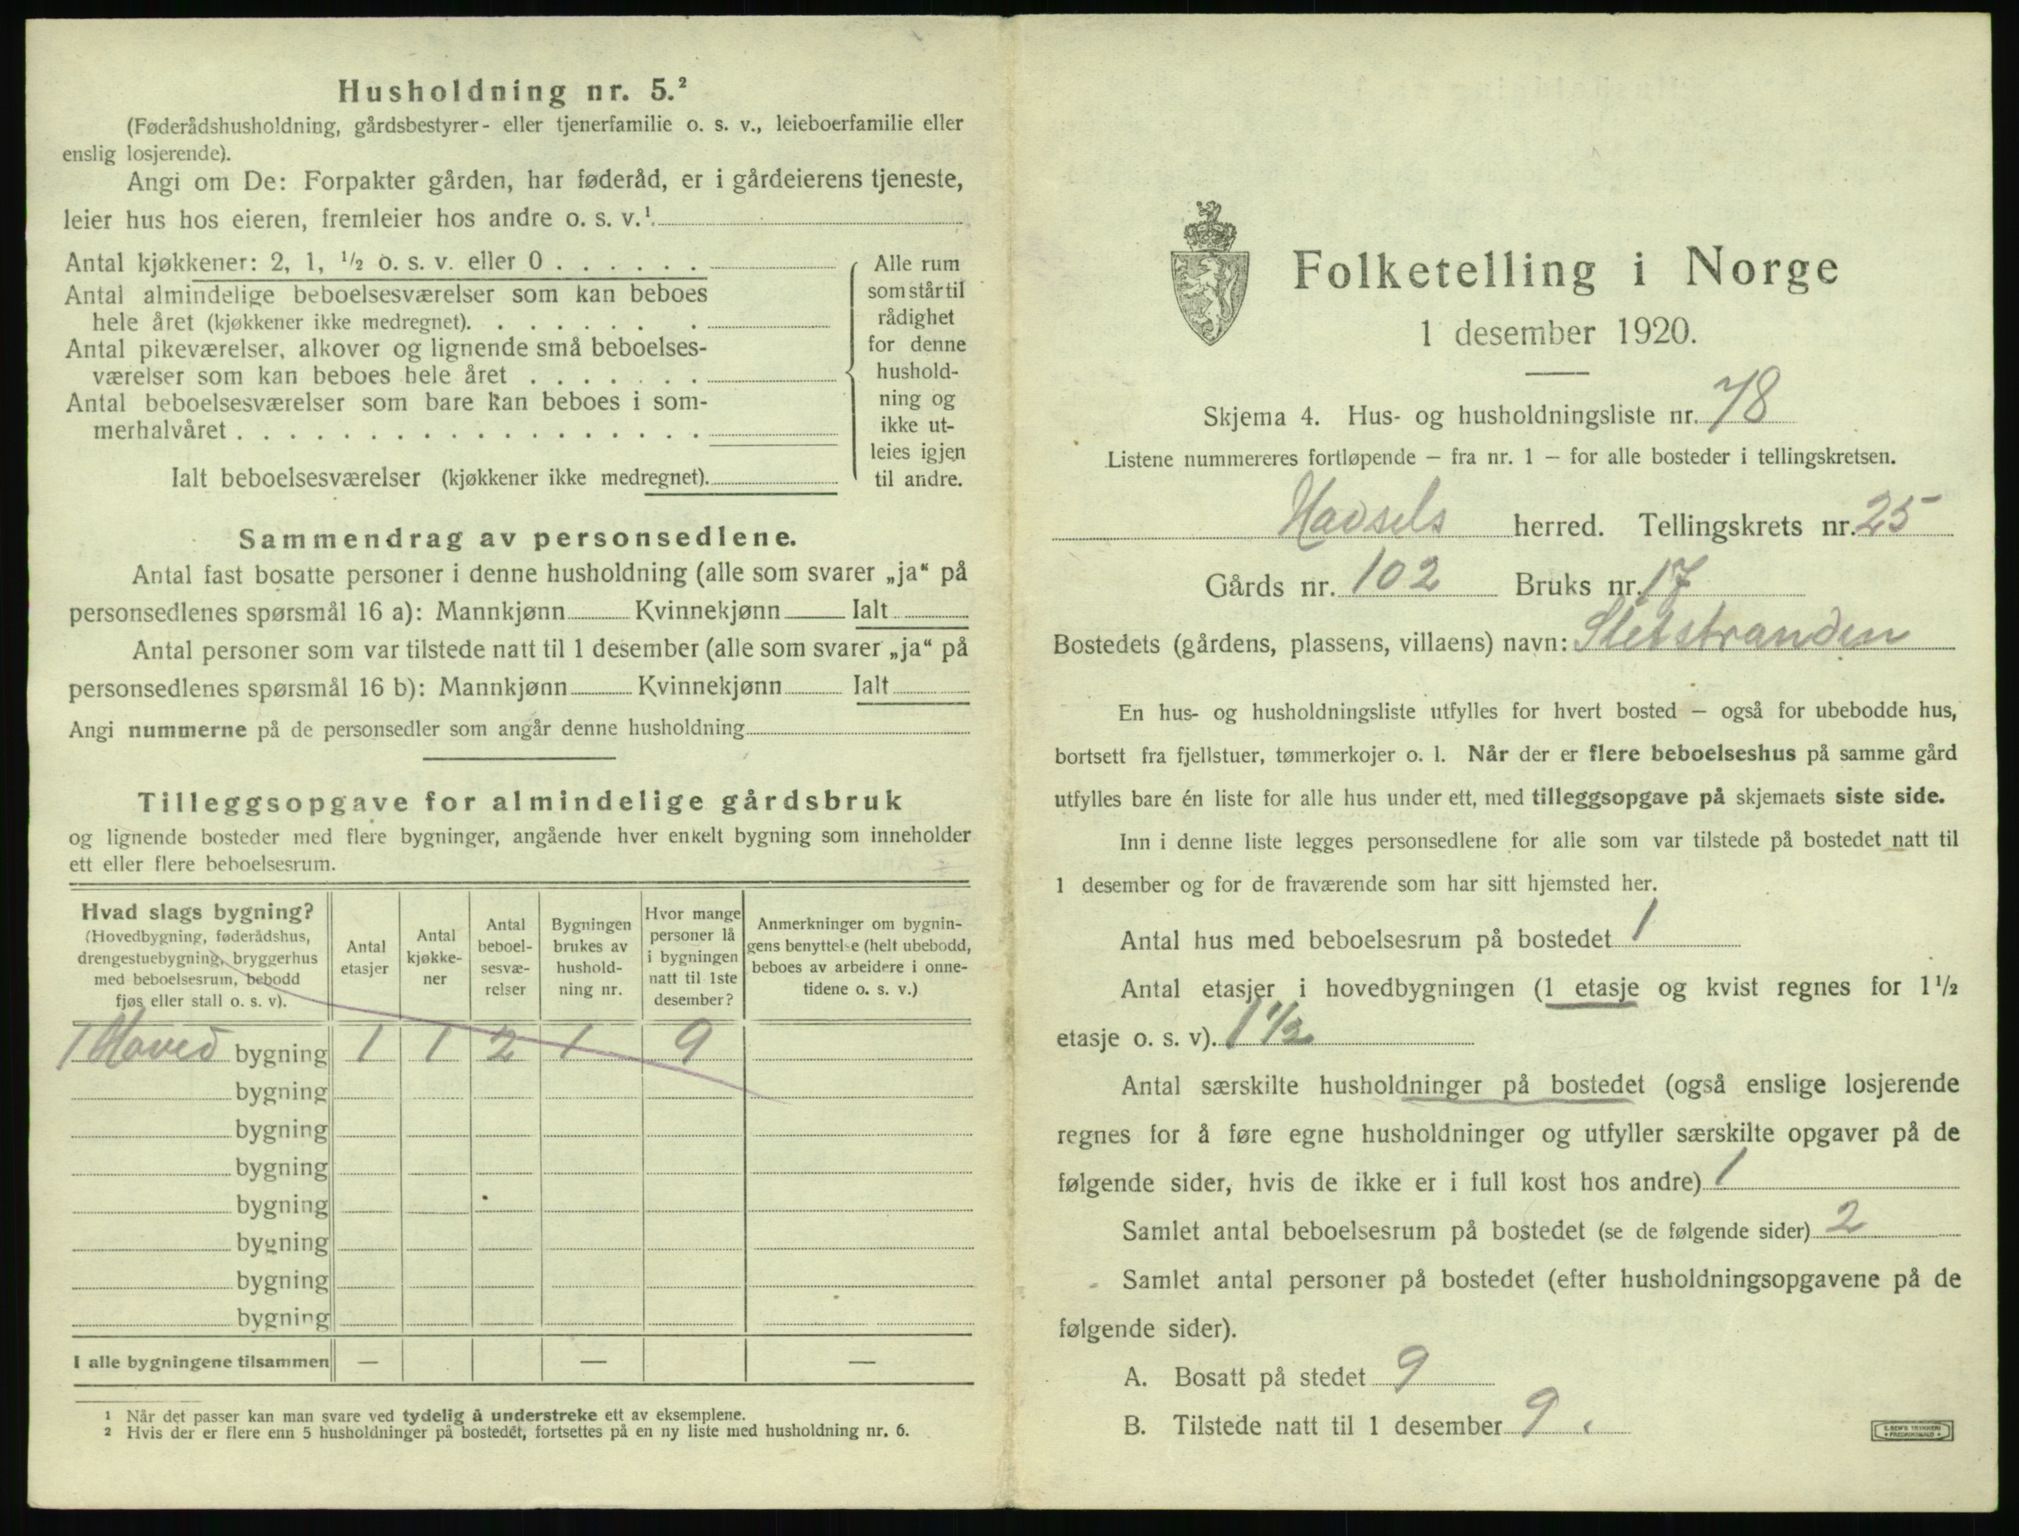 Husholdning nr. 5.²
(Føderådshusholdning, gårdsbestyrer- eller tjenerfamilie o. s. v., leieboerfamilie eller
enslig losjerende).
Angi om De: Forpakter gården, har føderåd, er i gårdeierens tjeneste,
leier hus hos eieren, fremleier hos andre o. s. v.¹
Antal kjøkkener: 2, 1, ½ o. s. v. eller 0 . . . . . .
Antal almindelige beboelsesværelser som kan beboes
hele året (kjøkkener ikke medregnet). . . . . . . .
Antal pikeværelser, alkover og lignende små beboelses-
værelser som kan beboes hele året . . . . . . .
Antal beboelsesværelser som bare kan beboes i som-
merhalvåret . . . . . . . . . . . . . . . . . .
Ialt beboelsesværelser (kjøkkener ikke medregnet).
Alle rum
som står til
rådighet
for denne
hushold-
ning og
ikke ut-
leies igjen
til andre.
Sammendrag av personsedlene.
Antal fast bosatte personer i denne husholdning (alle som svarer „ja“ på
personsedlenes spørsmål 16 a): Mannkjønn Kvinnekjønn Ialt
Antal personer som var tilstede natt til 1 desember (alle som svarer „ja“ på
personsedlenes spørsmål 16 b): Mannkjønn Kvinnekjønn Ialt
Angi nummerne på de personsedler som angår denne husholdning
Tilleggsopgave for almindelige gårdsbruk
og lignende bosteder med flere bygninger, angående hver enkelt bygning som inneholder
ett eller flere beboelsesrum.
Hvad slags bygning?
(Hovedbygning, føderådshus,
drengestuebygning, bryggerhus
med beboelsesrum, bebodd
fjøs eller stall o. s. v).
Antal
etasjer
Antal
kjøkke-
ner
Antal
beboel-
sesvæ-
relser
Bygningen
brukes av
hushold-
ning nr.
Hvor mange
personer lå
i bygningen
natt til 1ste
desember?
Anmerkninger om bygnin-
gens benyttelse (helt ubebodd,
beboes av arbeidere i onne-
tidene o. s. v.)
1 Hoved bygning 1 1 2 1 9
bygning
bygning
bygning
bygning
bygning
bygning
bygning
I alle bygningene tilsammen — — —
¹ Når det passer kan man svare ved tydelig å understreke ett av eksemplene.
² Hvis der er flere enn 5 husholdninger på bostedet, fortsettes på en ny liste med husholdning nr. 6.
Folketelling i Norge
1 desember 1920.
Skjema 4. Hus- og husholdningsliste nr. 78
Listene nummereres fortløpende — fra nr. 1 — for alle bosteder i tellingskretsen.
Hadsels herred. Tellingskrets nr. 25
Gårds nr. 102 Bruks nr. 17
Bostedets (gårdens, plassens, villaens) navn: Sletstranden
En hus- og husholdningsliste utfylles for hvert bosted — også for ubebodde hus,
bortsett fra fjellstuer, tømmerkojer o. l. Når der er flere beboelseshus på samme gård
utfylles bare én liste for alle hus under ett, med tilleggsopgave på skjemaets siste side.
Inn i denne liste legges personsedlene for alle som var tilstede på bostedet natt til
1 desember og for de fraværende som har sitt hjemsted her.
Antal hus med beboelsesrum på bostedet 1
Antal etasjer i hovedbygningen (1 etasje og kvist regnes for 1½
etasje o. s. v). 1 ½
Antal særskilte husholdninger på bostedet (også enslige losjerende
regnes for å føre egne husholdninger og utfyller særskilte opgaver på de
følgende sider, hvis de ikke er i full kost hos andre) 1
Samlet antal beboelsesrum på bostedet (se de følgende sider) 2
Samlet antal personer på bostedet (efter husholdningsopgavene på de
følgende sider).
A. Bosatt på stedet 9
B. Tilstede natt til 1 desember 9